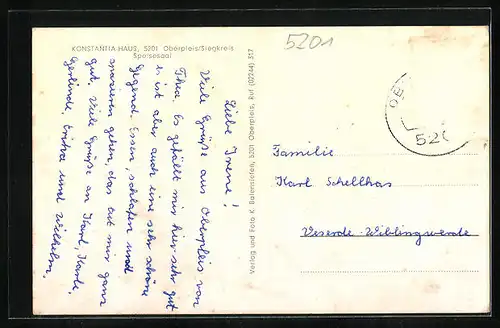 KONSTANTIA HAUS, 5201 Oberpleis/Siegkreis
Speisesaal
5201
Liebe Irene!
Viele Grüße aus Oberpleis von
Thea. Es gefällt mir hier sehr gut
es ist aber auch eine sehr schöne
Gegend. Essen, schlafen und
spazieren gehen, das tut mir ganz
gut. Viele Grüße an Karl,
Gerlinde, und Wilhelm.
Verlag und Foto K. 5201 Oberpleis, Ruf (02244) 317
Familie
Karl Schellhas
Veserde-Wiblingwerde
OB
520